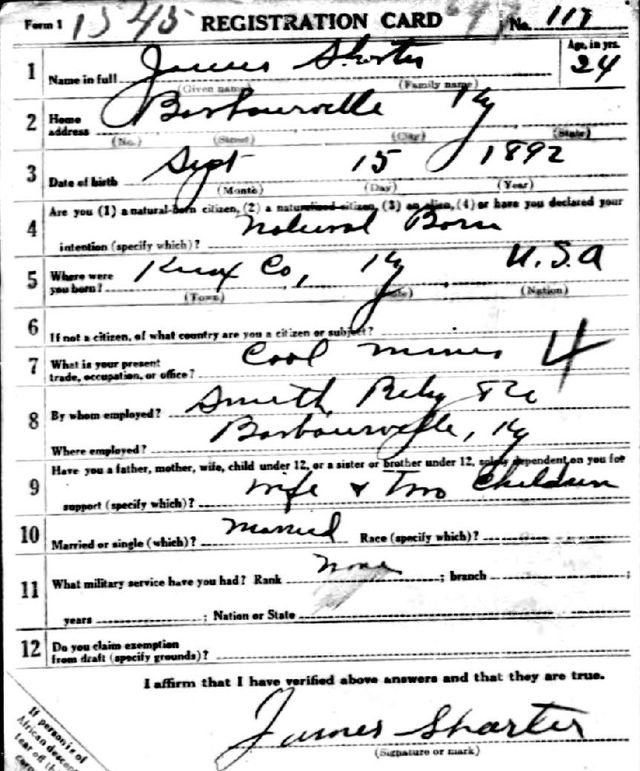 Form 1 1545 REGISTRATION CARD No. 117
1 Name in full James Shorter Age, in yrs. 24
(Given name) (Family name)
2 Home address Barbourville Ky
(No.) (Street) (City) (State)
3 Date of birth Sept 15 1892
(Month) (Day) (Year)
4 Are you (1) a natural-born citizen, (2) a naturalized citizen, (3) an alien, (4) or have you declared your
intention (specify which)? Natural Born
5 Where were you born? Knox Co, Ky U.S.A
(Town) (State) (Nation)
6 If not a citizen, of what country are you a citizen or subject?
7 What is your present
trade, occupation, or office? Coal miner 4
8 By whom employed? Smith
Where employed? Barbourville, Ky
9 Have you a father, mother, wife, child under 12, or a sister or brother under 12, solely dependent on you for
support (specify which)? wife & Two Children
10 Married or single (which)? Married Race (specify which)?
11 What military service have you had? Rank None ; branch ;
years ; Nation or State
12 Do you claim exemption
from draft (specify grounds)?
I affirm that I have verified above answers and that they are true.
James Sharter
(Signature or mark)
If person is of
African descent
tear off